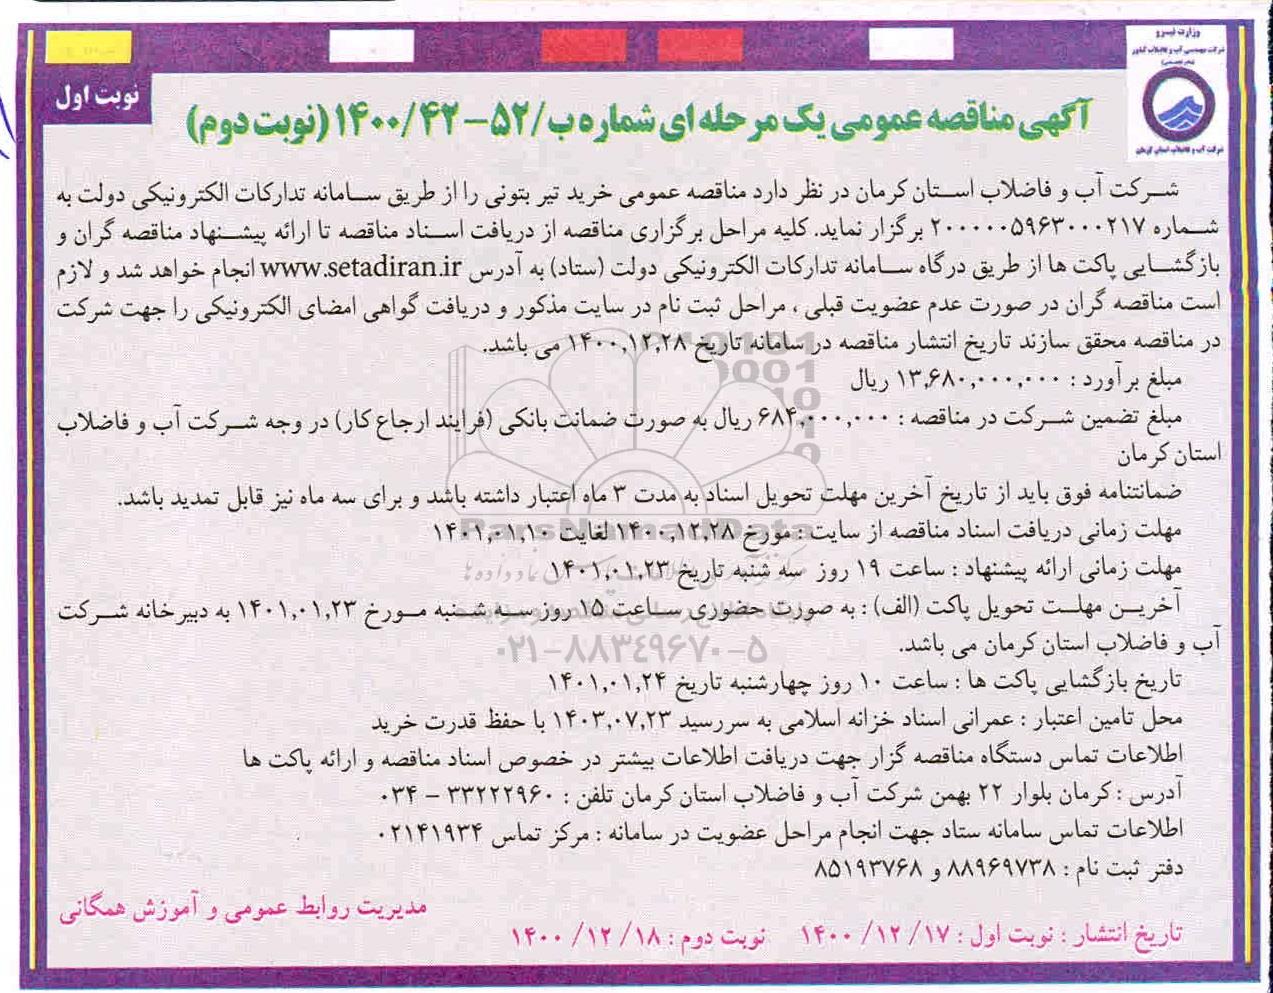 وزارت نیرو
شرکت مهندسی آب و فاضلاب کشور
شرکت آب و فاضلاب استان کرمان
نوبت اول
آگهی مناقصه عمومی یک مرحله ای شماره ب/۵۲-۱۴۰۰/۴۲ (نوبت دوم)
شرکت آب و فاضلاب استان کرمان در نظر دارد مناقصه عمومی خرید تیر بتونی را از طریق سامانه تدارکات الکترونیکی دولت به
شماره ۲۰۰۰۰۰۵۹۶۳۰۰۰۲۱۷ برگزار نماید. کلیه مراحل برگزاری مناقصه از دریافت اسناد مناقصه تا ارائه پیشنهاد مناقصه گران و
بازگشایی پاکت ها از طریق درگاه سامانه تدارکات الکترونیکی دولت (ستاد) به آدرس www.setadiran.ir انجام خواهد شد و لازم
است مناقصه گران در صورت عدم عضویت قبلی ، مراحل ثبت نام در سایت مذکور و دریافت گواهی امضای الکترونیکی را جهت شرکت
در مناقصه محقق سازند تاریخ انتشار مناقصه در سامانه تاریخ ۱۴۰۰,۱۲,۲۸ می باشد.
مبلغ برآورد : ۱۳,۶۸۰,۰۰۰,۰۰۰ ریال
مبلغ تضمین شرکت در مناقصه : ۶۸۴,۰۰۰,۰۰۰ ریال به صورت ضمانت بانکی (فرایند ارجاع کار) در وجه شرکت آب و فاضلاب
استان کرمان
ضمانتنامه فوق باید از تاریخ آخرین مهلت تحویل اسناد به مدت ۳ ماه اعتبار داشته باشد و برای سه ماه نیز قابل تمدید باشد.
مهلت زمانی دریافت اسناد مناقصه از سایت : مورخ ۱۴۰۰,۱۲,۲۸ لغایت ۱۴۰۱,۰۱,۱۰
مهلت زمانی ارائه پیشنهاد : ساعت ۱۹ روز سه شنبه تاریخ ۱۴۰۱,۰۱,۲۳
آخرین مهلت تحویل پاکت (الف) : به صورت حضوری ساعت ۱۵ روز سه شنبه مورخ ۱۴۰۱,۰۱,۲۳ به دبیرخانه شرکت
آب و فاضلاب استان کرمان می باشد.
تاریخ بازگشایی پاکت ها : ساعت ۱۰ روز چهارشنبه تاریخ ۱۴۰۱,۰۱,۲۴
محل تامین اعتبار : عمرانی اسناد خزانه اسلامی به سررسید ۱۴۰۳,۰۷,۲۳ با حفظ قدرت خرید
اطلاعات تماس دستگاه مناقصه گزار جهت دریافت اطلاعات بیشتر در خصوص اسناد مناقصه و ارائه پاکت ها
آدرس : کرمان بلوار ۲۲ بهمن شرکت آب و فاضلاب استان کرمان تلفن : ۳۳۲۲۲۹۶۰ - ۰۳۴
اطلاعات تماس سامانه ستاد جهت انجام مراحل عضویت در سامانه : مرکز تماس ۰۲۱۴۱۹۳۴
دفتر ثبت نام : ۸۸۹۶۹۷۳۸ و ۸۵۱۹۳۷۶۸
مدیریت روابط عمومی و آموزش همگانی
تاریخ انتشار : نوبت اول : ۱۷/ ۱۲/ ۱۴۰۰ نوبت دوم : ۱۸/ ۱۲/ ۱۴۰۰
ParsNamadData
۰۲۱-۸۸۳۴۹۶۷۰-۵